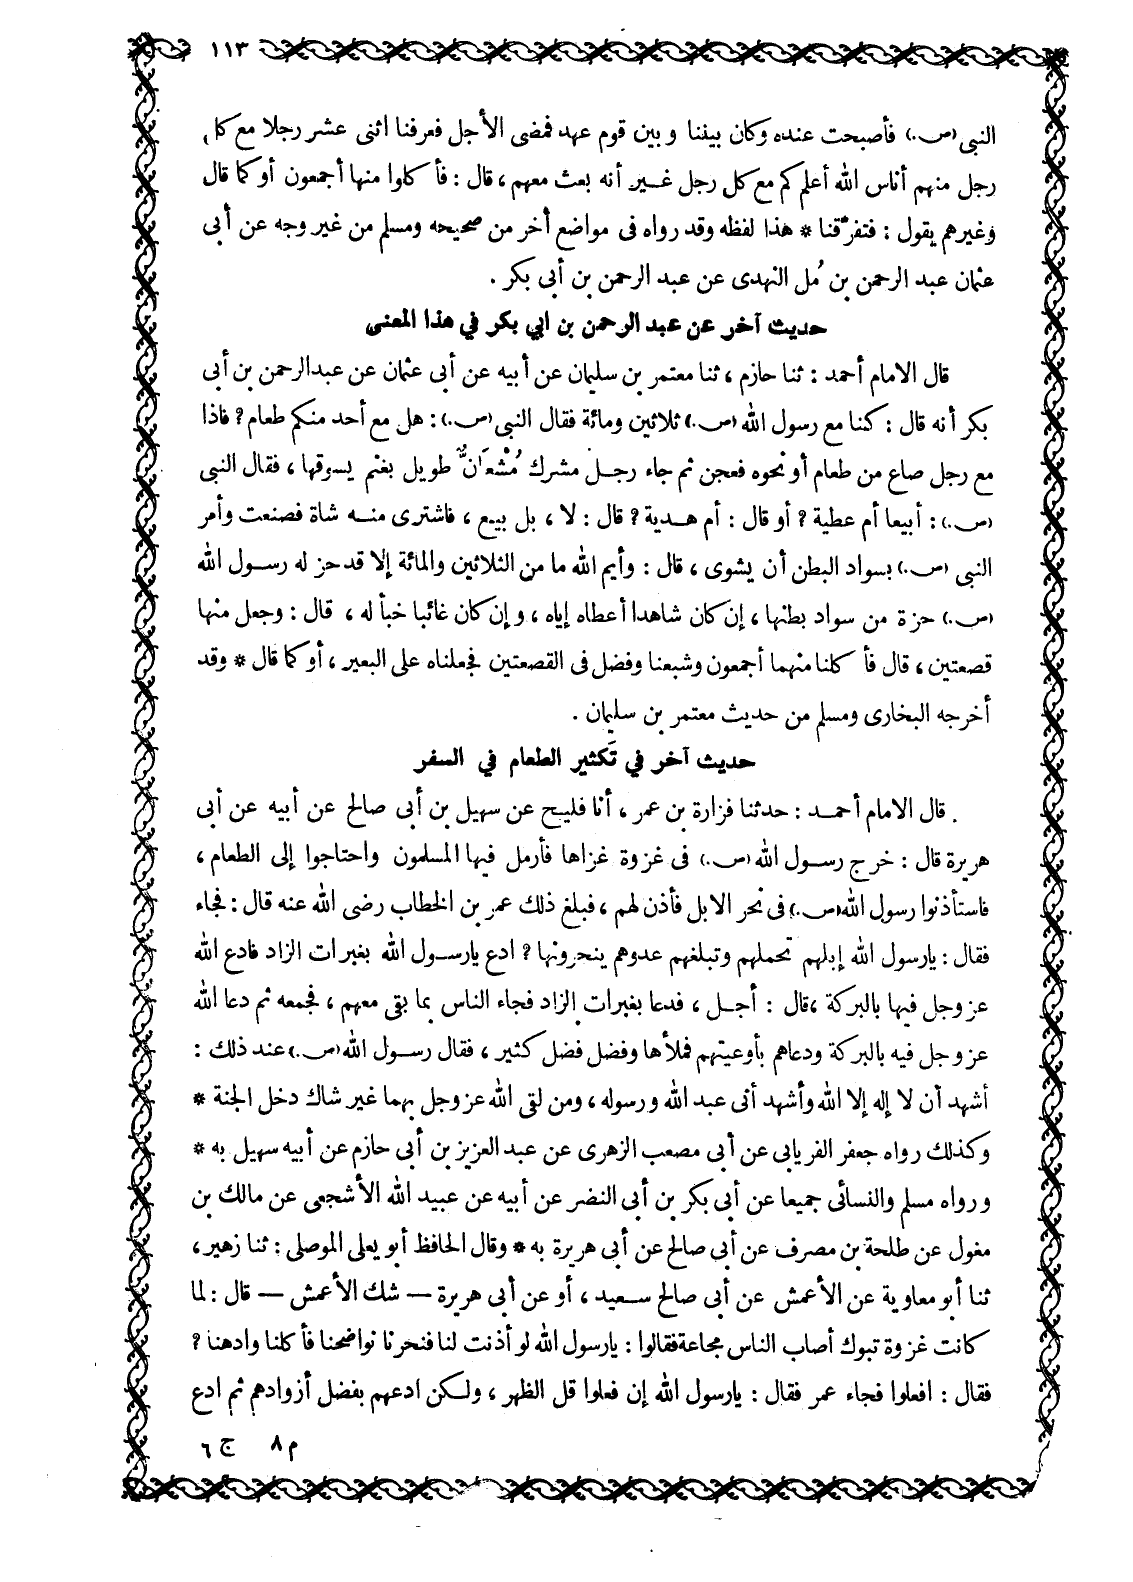 ١١٣
النبى (ص.) فأصبحت عنده وكان بيننا وبين قوم عهد فمضى الأجل فعرفنا اثنى عشر رجلا مع كل
رجل منهم أناس الله أعلم كم مع كل رجل غير أنه بعث معهم ، قال : فأكلوا منها أجمعون أو كما قال
وغيرهم يقول : فتفرّقنا * هذا لفظه وقد رواه فى مواضع أخر من صحيحه ومسلم من غير وجه عن أبى
عثمان عبد الرحمن بن مُل النهدى عن عبد الرحمن بن أبى بكر .
حديث آخر عن عبد الرحمن بن ابي بكر في هذا المعنى
قال الامام أحمد : ثنا حازم ، ثنا معتمر بن سليمان عن أبيه عن أبى عثمان عن عبدالرحمن بن أبى
بكر أنه قال : كنا مع رسول الله (ص.) ثلاثين ومائة فقال النبى (ص.) : هل مع أحد منكم طعام ? فاذا
مع رجل صاع من طعام أو نحوه فعجن ثم جاء رجل مشرك مُشْعَانٌّ طويل بغنم يسوقها ، فقال النبى
(ص.) : أبيعا أم عطية ? أو قال : أم هدية ? قال : لا ، بل بيع ، فاشترى منه شاة فصنعت وأمر
النبى (ص.) بسواد البطن أن يشوى ، قال : وأيم الله ما من الثلاثين والمائة إلا قد حز له رسول الله
(ص.) حزة من سواد بطنها ، إن كان شاهدا أعطاه إياه ، وإن كان غائبا خبأ له ، قال : وجعل منها
قصعتين ، قال فأكلنا منهما أجمعون وشبعنا وفضل فى القصعتين فجعلناه على البعير ، أو كما قال * وقد
أخرجه البخارى ومسلم من حديث معتمر بن سليمان .
حديث آخر في تَكثير الطعام في السفر
. قال الامام أحمد : حدثنا فزارة بن عمر ، أنا فليح عن سهيل بن أبى صالح عن أبيه عن أبى
هريرة قال : خرج رسول الله (ص.) فى غزوة غزاها فأرمل فيها المسلمون واحتاجوا إلى الطعام ،
فاستأذنوا رسول الله(ص.) فى نحر الابل فأذن لهم ، فبلغ ذلك عمر بن الخطاب رضى الله عنه قال : فجاء
فقال : يارسول الله إبلهم تحملهم وتبلغهم عدوهم ينحرونها ? ادع يارسول الله بغبرات الزاد فادع الله
عز وجل فيها بالبركة ،قال : أجل ، فدعا بغبرات الزاد فجاء الناس بما بقى معهم ، فجمعه ثم دعا الله
عز وجل فيه بالبركة ودعاهم بأوعيتهم فملأها وفضل فضل كثير ، فقال رسول الله(ص.) عند ذلك :
أشهد أن لا إله إلا الله وأشهد أنى عبد الله ورسوله ، ومن لقى الله عز وجل بهما غير شاك دخل الجنة *
وكذلك رواه جعفر الفريابى عن أبى مصعب الزهرى عن عبد العزيز بن أبى حازم عن أبيه سهيل به *
ورواه مسلم والنسائى جميعا عن أبى بكر بن أبى النضر عن أبيه عن عبيد الله الأشجعى عن مالك بن
مغول عن طلحة بن مصرف عن أبى صالح عن أبى هريرة به * وقال الحافظ أبو يعلى الموصلى : ثنا زهير ،
ثنا أبو معاوية عن الأعمش عن أبى صالح سعيد ، أو عن أبى هريرة — شك الأعمش — قال : لما
كانت غزوة تبوك أصاب الناس مجاعةفقالوا : يارسول الله لو أذنت لنا فنحرنا نواضحنا فأكلنا وادهنا ?
فقال : افعلوا فجاء عمر فقال : يارسول الله إن فعلوا قل الظهر ، ولكن ادعهم بفضل أزوادهم ثم ادع
م ٨ ج ٦